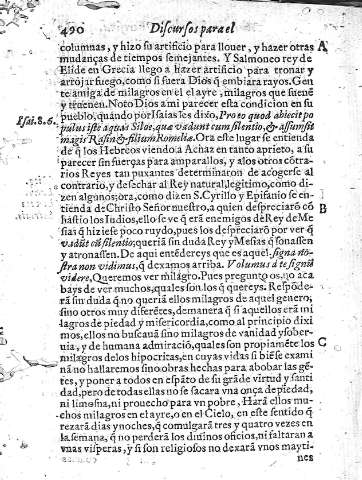 490 Discursos para el
columnas, y hizo su artificio para llouer, y hazer otras A
mudanças de tiempos semejantes. Y Salmoneo rey de
Elide en Grecia llego a hazer artificio para tronar y
arrojar fuego, como si fuera Dios q̃ embiara rayos. Gen
te amiga de milagros en el ayre, milagros que suenẽ
y truenen. Noto Dios a mi parecer esta condicion en su
pueblo, quando por Isaias les dixo, Pro eo quod abiecit po
Esai.8.6. pulus iste aquas Siloe, quæ vadunt cum silentio, & assumpsit
magis Rasin & filium Romeliæ. Ora este lugar se entienda
de q̃ los Hebreos viendo a Achaz en tanto aprieto, a su
parecer sin fuerças para ampararlos, y a los otros cõtra-
rios Reyes tan puxantes determinaron de acogerse al
contrario, y desechar al Rey natural, legitimo, como di-
zen algunos; ora, como dizen S. Cyrillo y Epifanio se en-
tienda de Christo Señor nuestro, a quien despreciarõ cõ B
hastio los Iudios, ello se ve q̃ erã enemigos de Rey de Me-
sias q̃ hiziese poco ruydo, pues los despreciarõ por ver q̃
vadũt cũ silentio, queriã sin duda Rey y Mesias q̃ sonassen
y atronassen. De aqui entẽdereys que es aquel, signa no-
stra non vidimus, q̃ dexamos arriba. Volumus à te signũ
videre, Queremos ver milagro. Pues pregunto os, no aca
bays de ver muchos, quales son los q̃ quereys. Respõde-
rã sin duda q̃ no queriã ellos milagros de aquel genero,
sino otros muy diferẽtes, demanera q̃ si aquellos erã mi
lagros de piedad y misericordia, como al principio dixi
mos, ellos no buscauã sino milagros de vanidad y sober-
uia, y de humana admiraciõ, quales son propiamẽte los C
milagros de los hipocritas, en cuyas vidas si biẽ se exami
nã no hallaremos sino obras hechas para abobar las gẽ-
tes, y poner a todos en espãto de su grãde virtud y santi
dad, pero de todas ellas no se sacara vna onça de piedad,
ni limosna, ni prouecho para vn pobre, Harã ellos mu-
chos milagros en el ayre, o en el Cielo, en este sentido q̃
rezarã dias y noches, q̃ comulgarã tres y quatro vezes en
la semana, q̃ no perderã los diuinos oficios, ni faltaran a
vnas visperas, y si son religiosos no dexarã vnos mayti-
nes